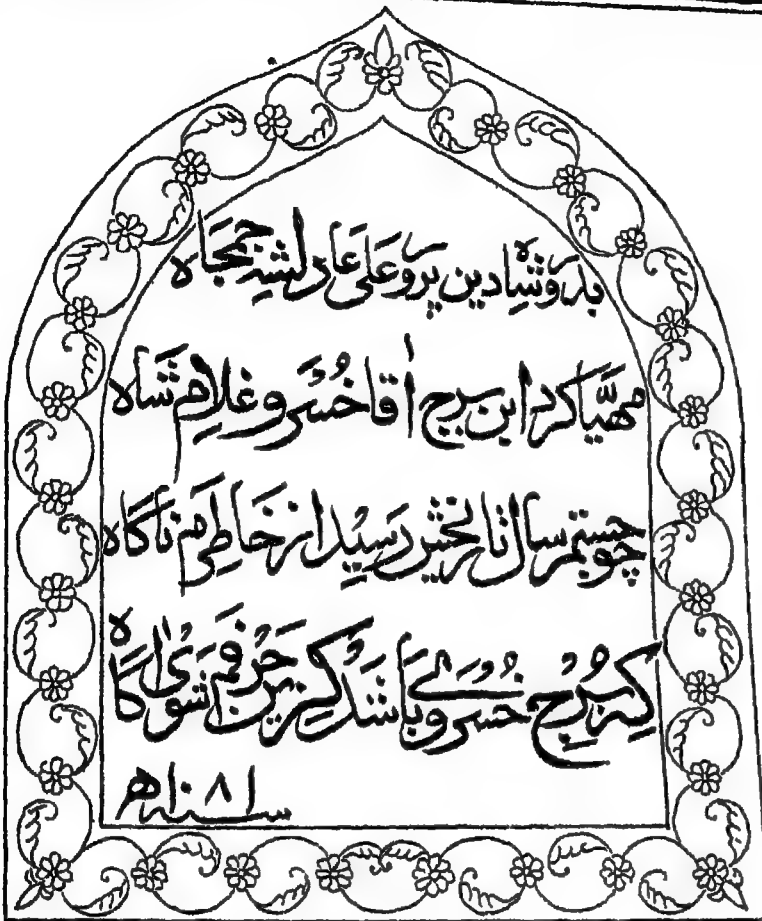 بدورشاه دین پرور علی عادل شه جمجاه
مهیّا کرد این برج اٰقا خُسرو غلامِ شاه
چو جستم سال تاریخش رسید از خاطرِم ناگاه
که برج خسروی باشد کزین حرفم شوی اگاه
سنه ۱۰۸۱ھ